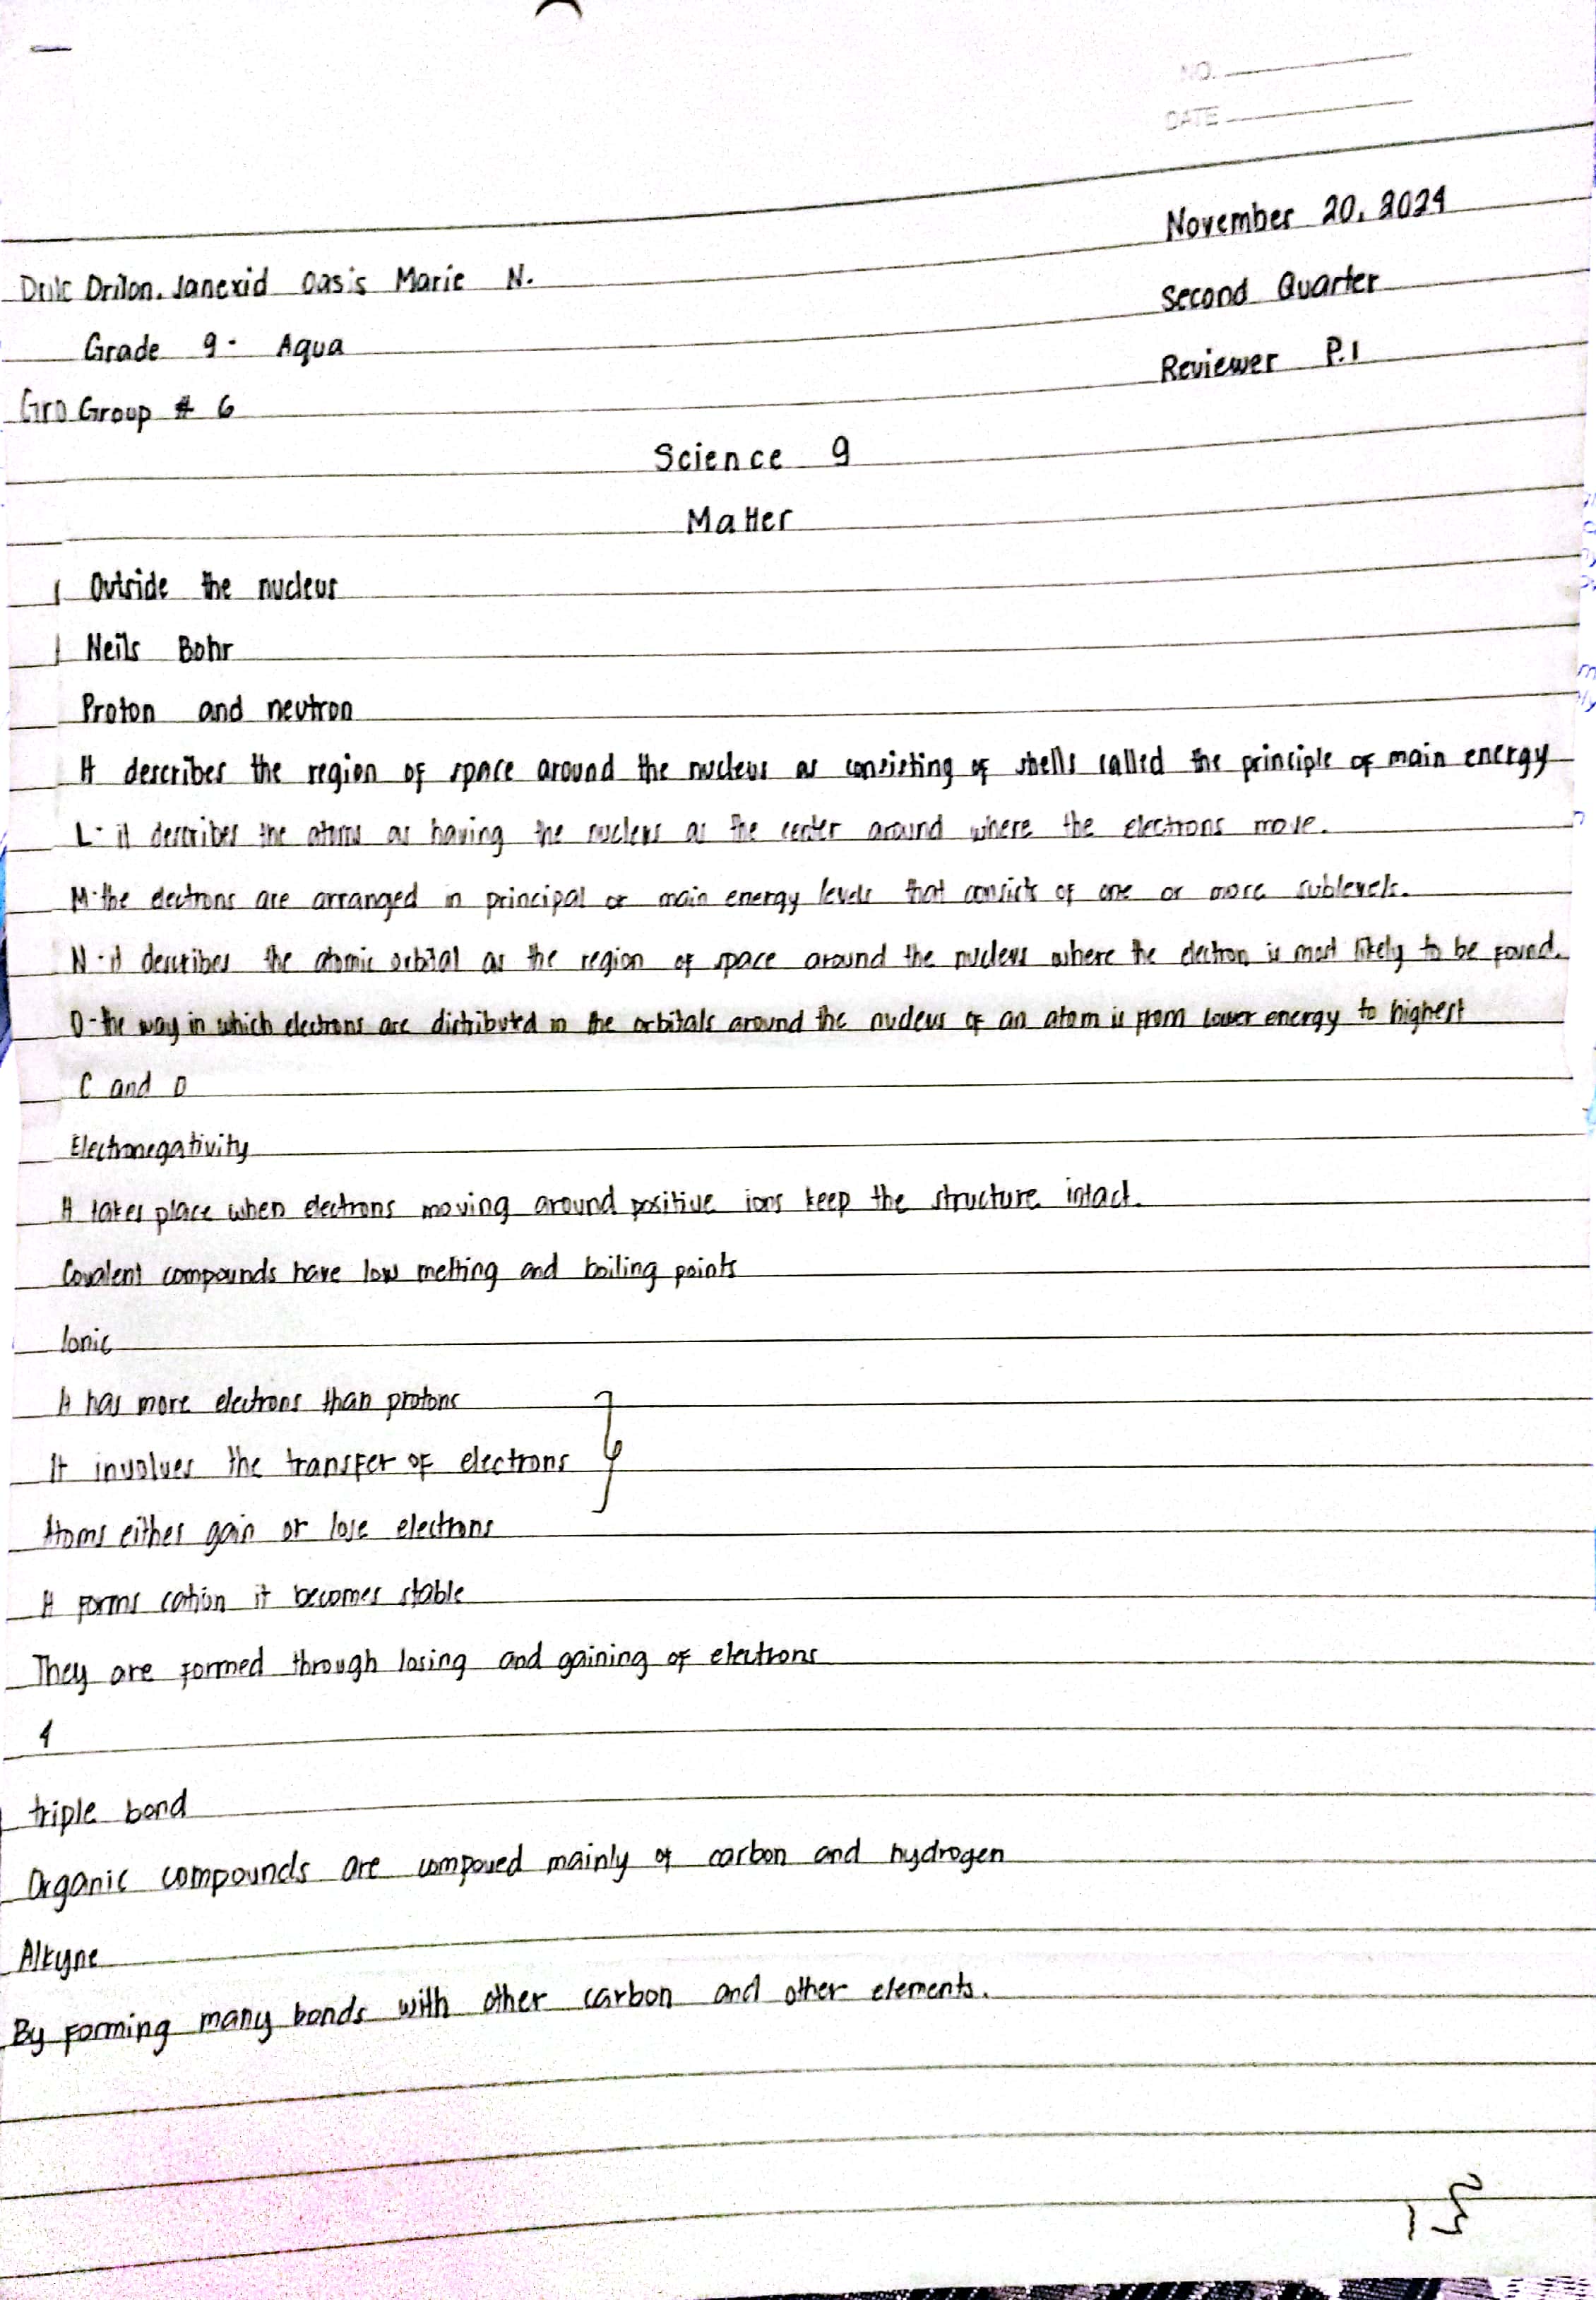 NO.
DATE
November 20, 2024
Drilon, Janexid Oasis Marie N.
Second Quarter
Grade 9 - Aqua
Reviewer P.1
Gro Group # 6
Science 9
Matter
Outside the nucleus
Neils Bohr
Proton and neutron
It describes the region of space around the nucleus as consisting of shells called the principle of main energy
L - it describes the atoms as having the nucleus as the center around where the electrons move.
M - the electrons are arranged in principal or main energy levels that consists of one or more sublevels.
N - it describes the atomic orbital as the region of space around the nucleus where the electron is most likely to be found.
O - the way in which electrons are distributed in the orbitals around the nucleus of an atom is from lower energy to highest
C and O
Electronegativity
It takes place when electrons moving around positive ions keep the structure intact.
Covalent compounds have low melting and boiling points
Ionic
It has more electrons than protons
It involves the transfer of electrons
Atoms either gain or lose electrons
It forms cation it becomes stable
They are formed through losing and gaining of electrons
4
triple bond
Organic compounds are composed mainly of carbon and hydrogen
Alkyne
By forming many bonds with other carbon and other elements.